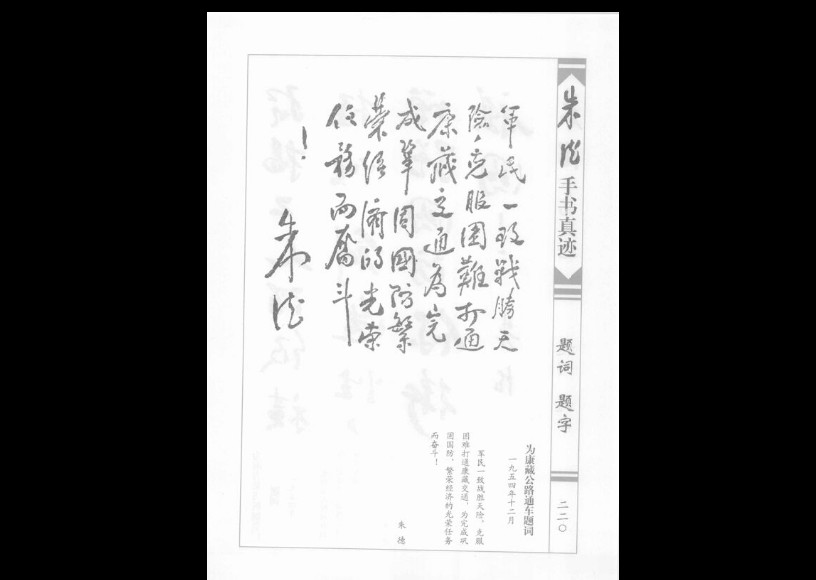 朱德手书真迹
题词 题字
二二〇
军民一致战胜天
险，克服困难打通
康藏交通为完
成巩固国防繁
荣经济的光荣
任务而奋斗
！
朱德
为康藏公路通车题词
一九五四年十二月
军民一致战胜天险，克服
困难打通康藏交通，为完成巩
固国防、繁荣经济的光荣任务
而奋斗！
朱德